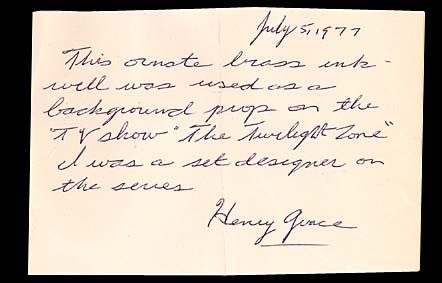 July 5, 1977
This ornate brass ink-
well was used as a
background prop on the
TV show "The Twilight Zone"
I was a set designer on
the series
Henry Grace